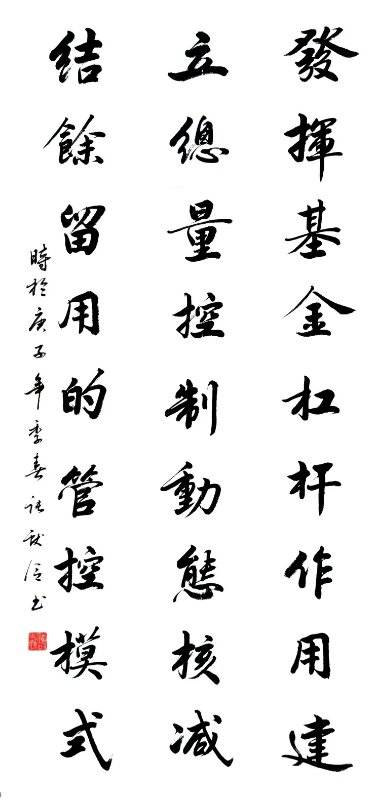 發揮基金杠杆作用建
立總量控制動態核减
結餘留用的管控模式
時於庚子年季春